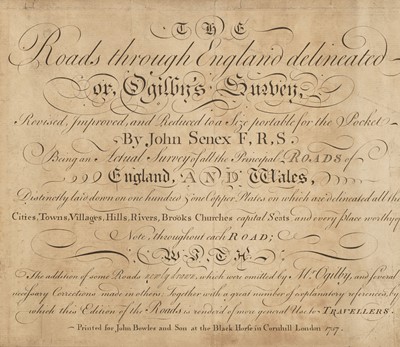 THE
Roads through England delineated
or, Ogilby's Survey,
Revised, Improved, and Reduced to a Size portable for the Pocket
By John Senex F.R.S.
Being an Actual Survey of all the Principal ROADS of
England, AND Wales,
Distinctly laid down on one hundred & one Copper Plates on which are delineated all the
Cities, Towns, Villages, Hills, Rivers, Brooks Churches capital Seats and every place worthy of
Note, throughout each ROAD;
WITH
The addition of some Roads newly drawn, which were omitted by Mr. Ogilby, and several
necessary Corrections made in others, Together with a great number of explanatory references, by
which this Edition of the Roads is renderd of more general Use to TRAVELLERS.
Printed for John Bowles and Son at the Black Horse in Cornhill London